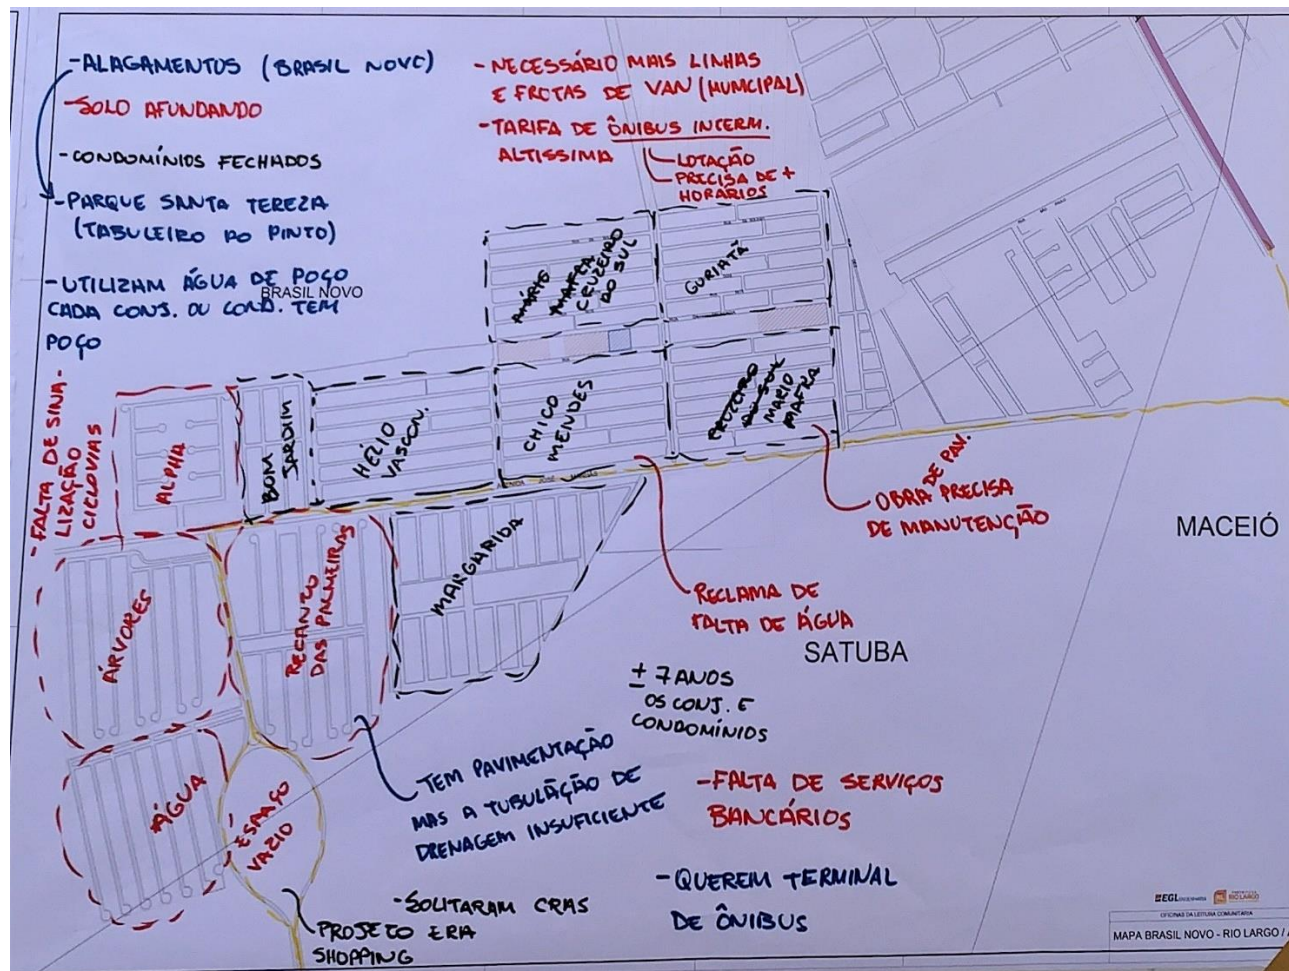 -ALAGAMENTOS (BRASIL NOVO)
-SOLO AFUNDANDO
-CONDOMÍNIOS FECHADOS
-PARQUE SANTA TEREZA
(TABULEIRO DO PINTO)
-UTILIZAM ÁGUA DE POÇO
CADA CONJ. OU COND. TEM
POÇO
BRASIL NOVO
-NECESSÁRIO MAIS LINHAS
E FROTAS DE VAN (MUNCIPAL)
-TARIFA DE ÔNIBUS INTERM.
ALTISSIMA
LOTAÇÃO
PRECISA DE +
HORÁRIOS
MÁRIO
MAFRA
CRUZEIRO
DO SUL
GURIATÃ
-FALTA DE SINA-
LIZAÇÃO
CICLOVIAS
ALPHA
BOM
JARDIM
HÉLIO
VASCON.
CHICO
MENDES
CRUZEIRO
DO SUL
MARIO
MAFRA
OBRA DE PAV.
PRECISA
DE MANUTENÇÃO
MACEIÓ
ÁRVORES
RECANTO
DAS PALMEIRAS
MARGARIDA
RECLAMA DE
FALTA DE ÁGUA
SATUBA
± 7 ANOS
OS CONJ. E
CONDOMÍNIOS
ÁGUA
ESPAÇO
VAZIO
TEM PAVIMENTAÇÃO
MAS A TUBULAÇÃO DE
DRENAGEM INSUFICIENTE
-FALTA DE SERVIÇOS
BANCÁRIOS
-SOLITARAM CRAS
PROJETO ERA
SHOPPING
-QUEREM TERMINAL
DE ÔNIBUS
EGL ENGENHARIA
PREFEITURA
RIO LARGO
OFICINAS DA LEITURA COMUNITÁRIA
MAPA BRASIL NOVO - RIO LARGO /